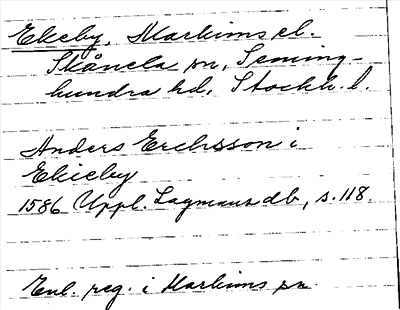 Ekeby, Markims el.
Skånela sn, Seming-
hundra hd, Stockh. l.
Anders Erichsson i
Ekieby
1586 Uppl. Lagmans db, s. 118.
Enl. reg. i Markims sn